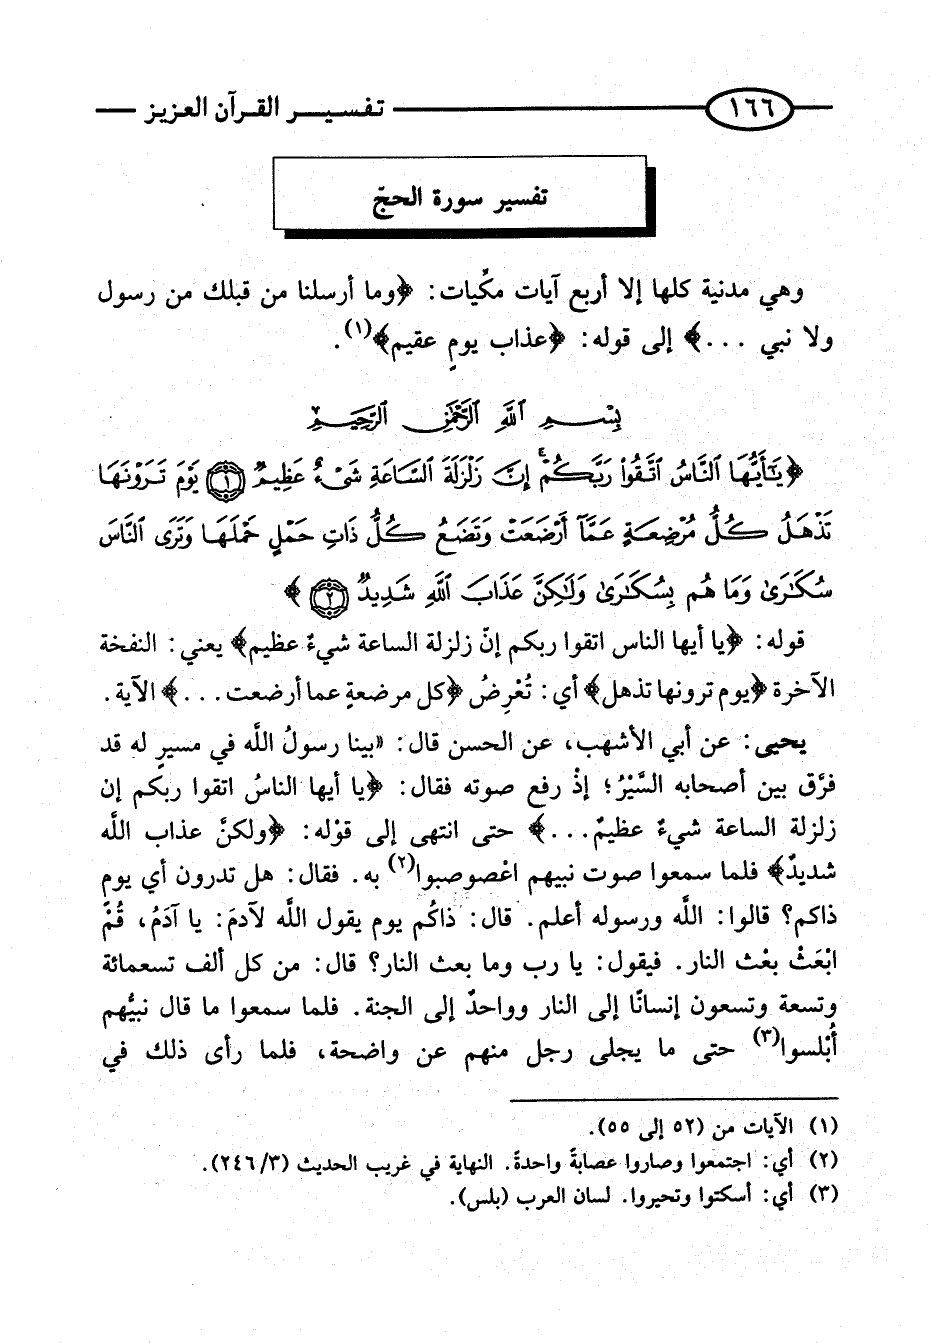 ١٦٦ تفسير القرآن العزيز
تفسير سورة الحجّ
وهي مدنية كلها إلا أربع آيات مكِّيات: ﴿وما أرسلنا من قبلك من رسول
ولا نبي ...﴾ إلى قوله: ﴿عذاب يومٍ عقيم﴾(١).
بِسْمِ ٱللَّهِ ٱلرَّحْمَٰنِ ٱلرَّحِيمِ
﴿يَٰٓأَيُّهَا ٱلنَّاسُ ٱتَّقُوا۟ رَبَّكُمْ ۚ إِنَّ زَلْزَلَةَ ٱلسَّاعَةِ شَىْءٌ عَظِيمٌ ١ يَوْمَ تَرَوْنَهَا
تَذْهَلُ كُلُّ مُرْضِعَةٍ عَمَّآ أَرْضَعَتْ وَتَضَعُ كُلُّ ذَاتِ حَمْلٍ حَمْلَهَا وَتَرَى ٱلنَّاسَ
سُكَٰرَىٰ وَمَا هُم بِسُكَٰرَىٰ وَلَٰكِنَّ عَذَابَ ٱللَّهِ شَدِيدٌ ٢﴾
قوله: ﴿يا أيها الناس اتقوا ربكم إنّ زلزلة الساعة شيءٌ عظيم﴾ يعني: النفخة
الآخرة ﴿يوم ترونها تذهل﴾ أي: تُعْرِضُ ﴿كل مرضعةٍ عما أرضعت...﴾ الآية.
يحيى: عن أبي الأشهب، عن الحسن قال: «بينا رسولُ اللَّه في مسيرٍ له قد
فرَّق بين أصحابه السَّيْرُ؛ إذْ رفع صوته فقال: ﴿يا أيها الناسُ اتقوا ربكم إن
زلزلة الساعة شيءٌ عظيمٌ...﴾ حتى انتهى إلى قوْله: ﴿ولكنَّ عذاب اللَّه
شديدٌ﴾ فلما سمعوا صوت نبيهم اعْصوصبوا(٢) به. فقال: هل تدرون أي يوم
ذاكم؟ قالوا: اللَّه ورسوله أعلم. قال: ذاكُم يوم يقول اللَّه لآدمَ: يا آدَمُ، قُمْ
ابْعَثْ بعْث النار. فيقول: يا رب وما بعث النار؟ قال: من كل ألف تسعمائة
وتسعة وتسعون إنسانًا إلى النار وواحدٌ إلى الجنة. فلما سمعوا ما قال نبيُّهم
أُبْلسوا(٣) حتى ما يجلى رجل منهم عن واضحة، فلما رأى ذلك في
(١) الآيات من (٥٢ إلى ٥٥).
(٢) أي: اجتمعوا وصاروا عصابةً واحدةً. النهاية في غريب الحديث (٢٤٦/٣).
(٣) أي: أسكتوا وتحيروا. لسان العرب (بلس).